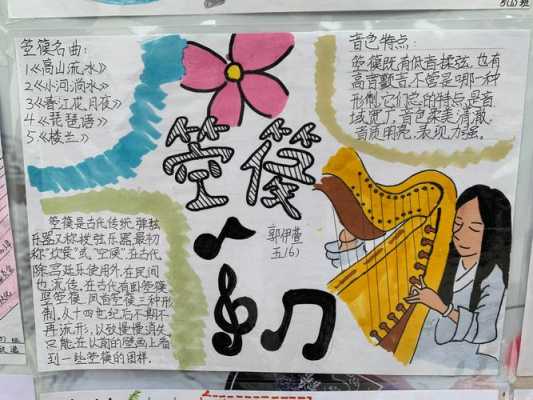 箜篌名曲:
1《高山流水》
2《小河淌水》
3《春江花月夜》
4《琵琶语》
5《楼兰》
音色特点:
箜篌既有低音揉弦,也有
高音颤音,不管是哪一种
形制,它们总的特点是音
域宽广、音色柔美清澈,
音质明亮、表现力强。
箜篌
郭伊萱
五(6)
箜篌是古代传统弹弦
乐器,又称拨弦乐器,最初
称“坎侯”或“空侯”,在古代
除宫廷乐使用外,在民间
也流传,在古代有卧箜篌、
竖箜篌、凤首箜篌三种形
制,从十四世纪后不期不
再流形,以致慢慢消失,
只能在以前的壁画上看
到一些箜篌的图样。